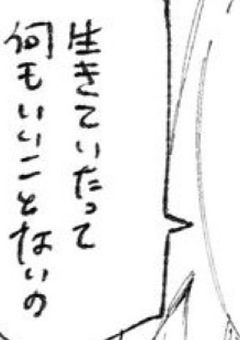 生きていたって
何もいいことないの